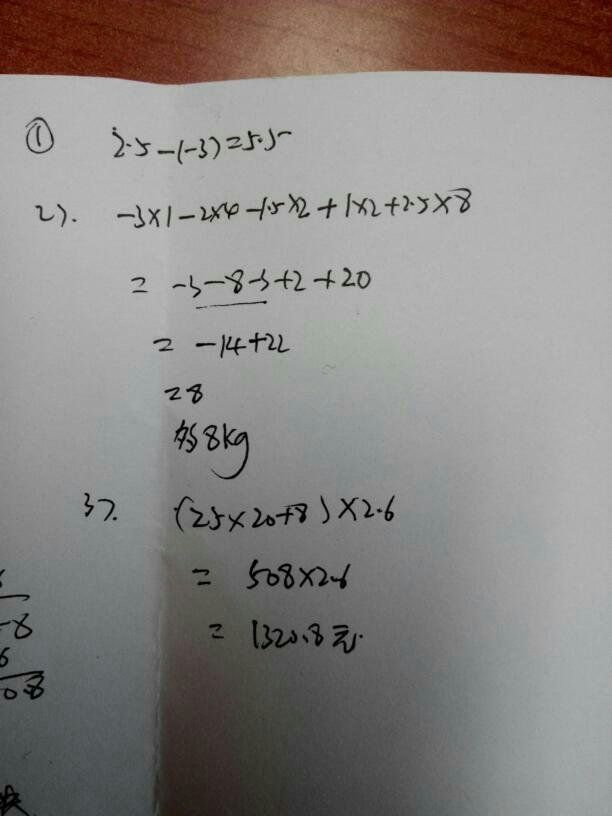 ① 2.5-(-3)=5.5
2). -3×1-2×4-1.5×2+1×2+2.5×8
= -3-8-3+2+20
= -14+22
=8
多8kg
3). (25×20+8)×2.6
= 508×2.6
= 1320.8元.
-8
6
0.8